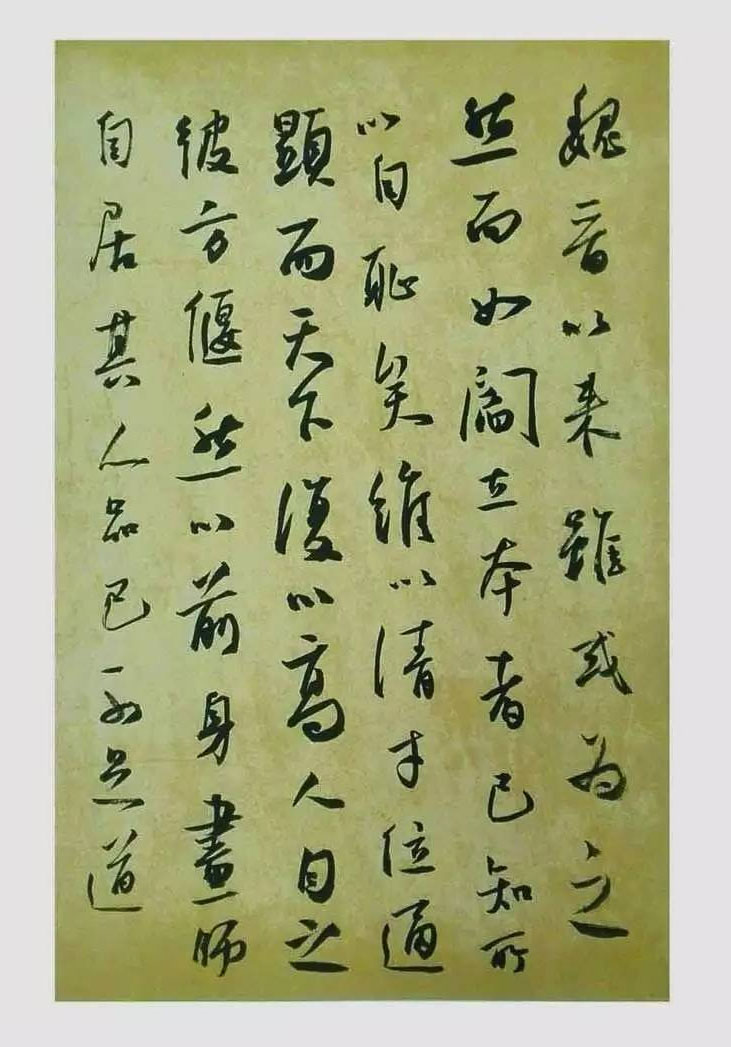 魏晋以来雖或為之
然而如閻立本者已知所
以自恥矣維以清才位通
顯而天下復以高人目之
彼方偃然以前身畫師
自居其人品已不足道